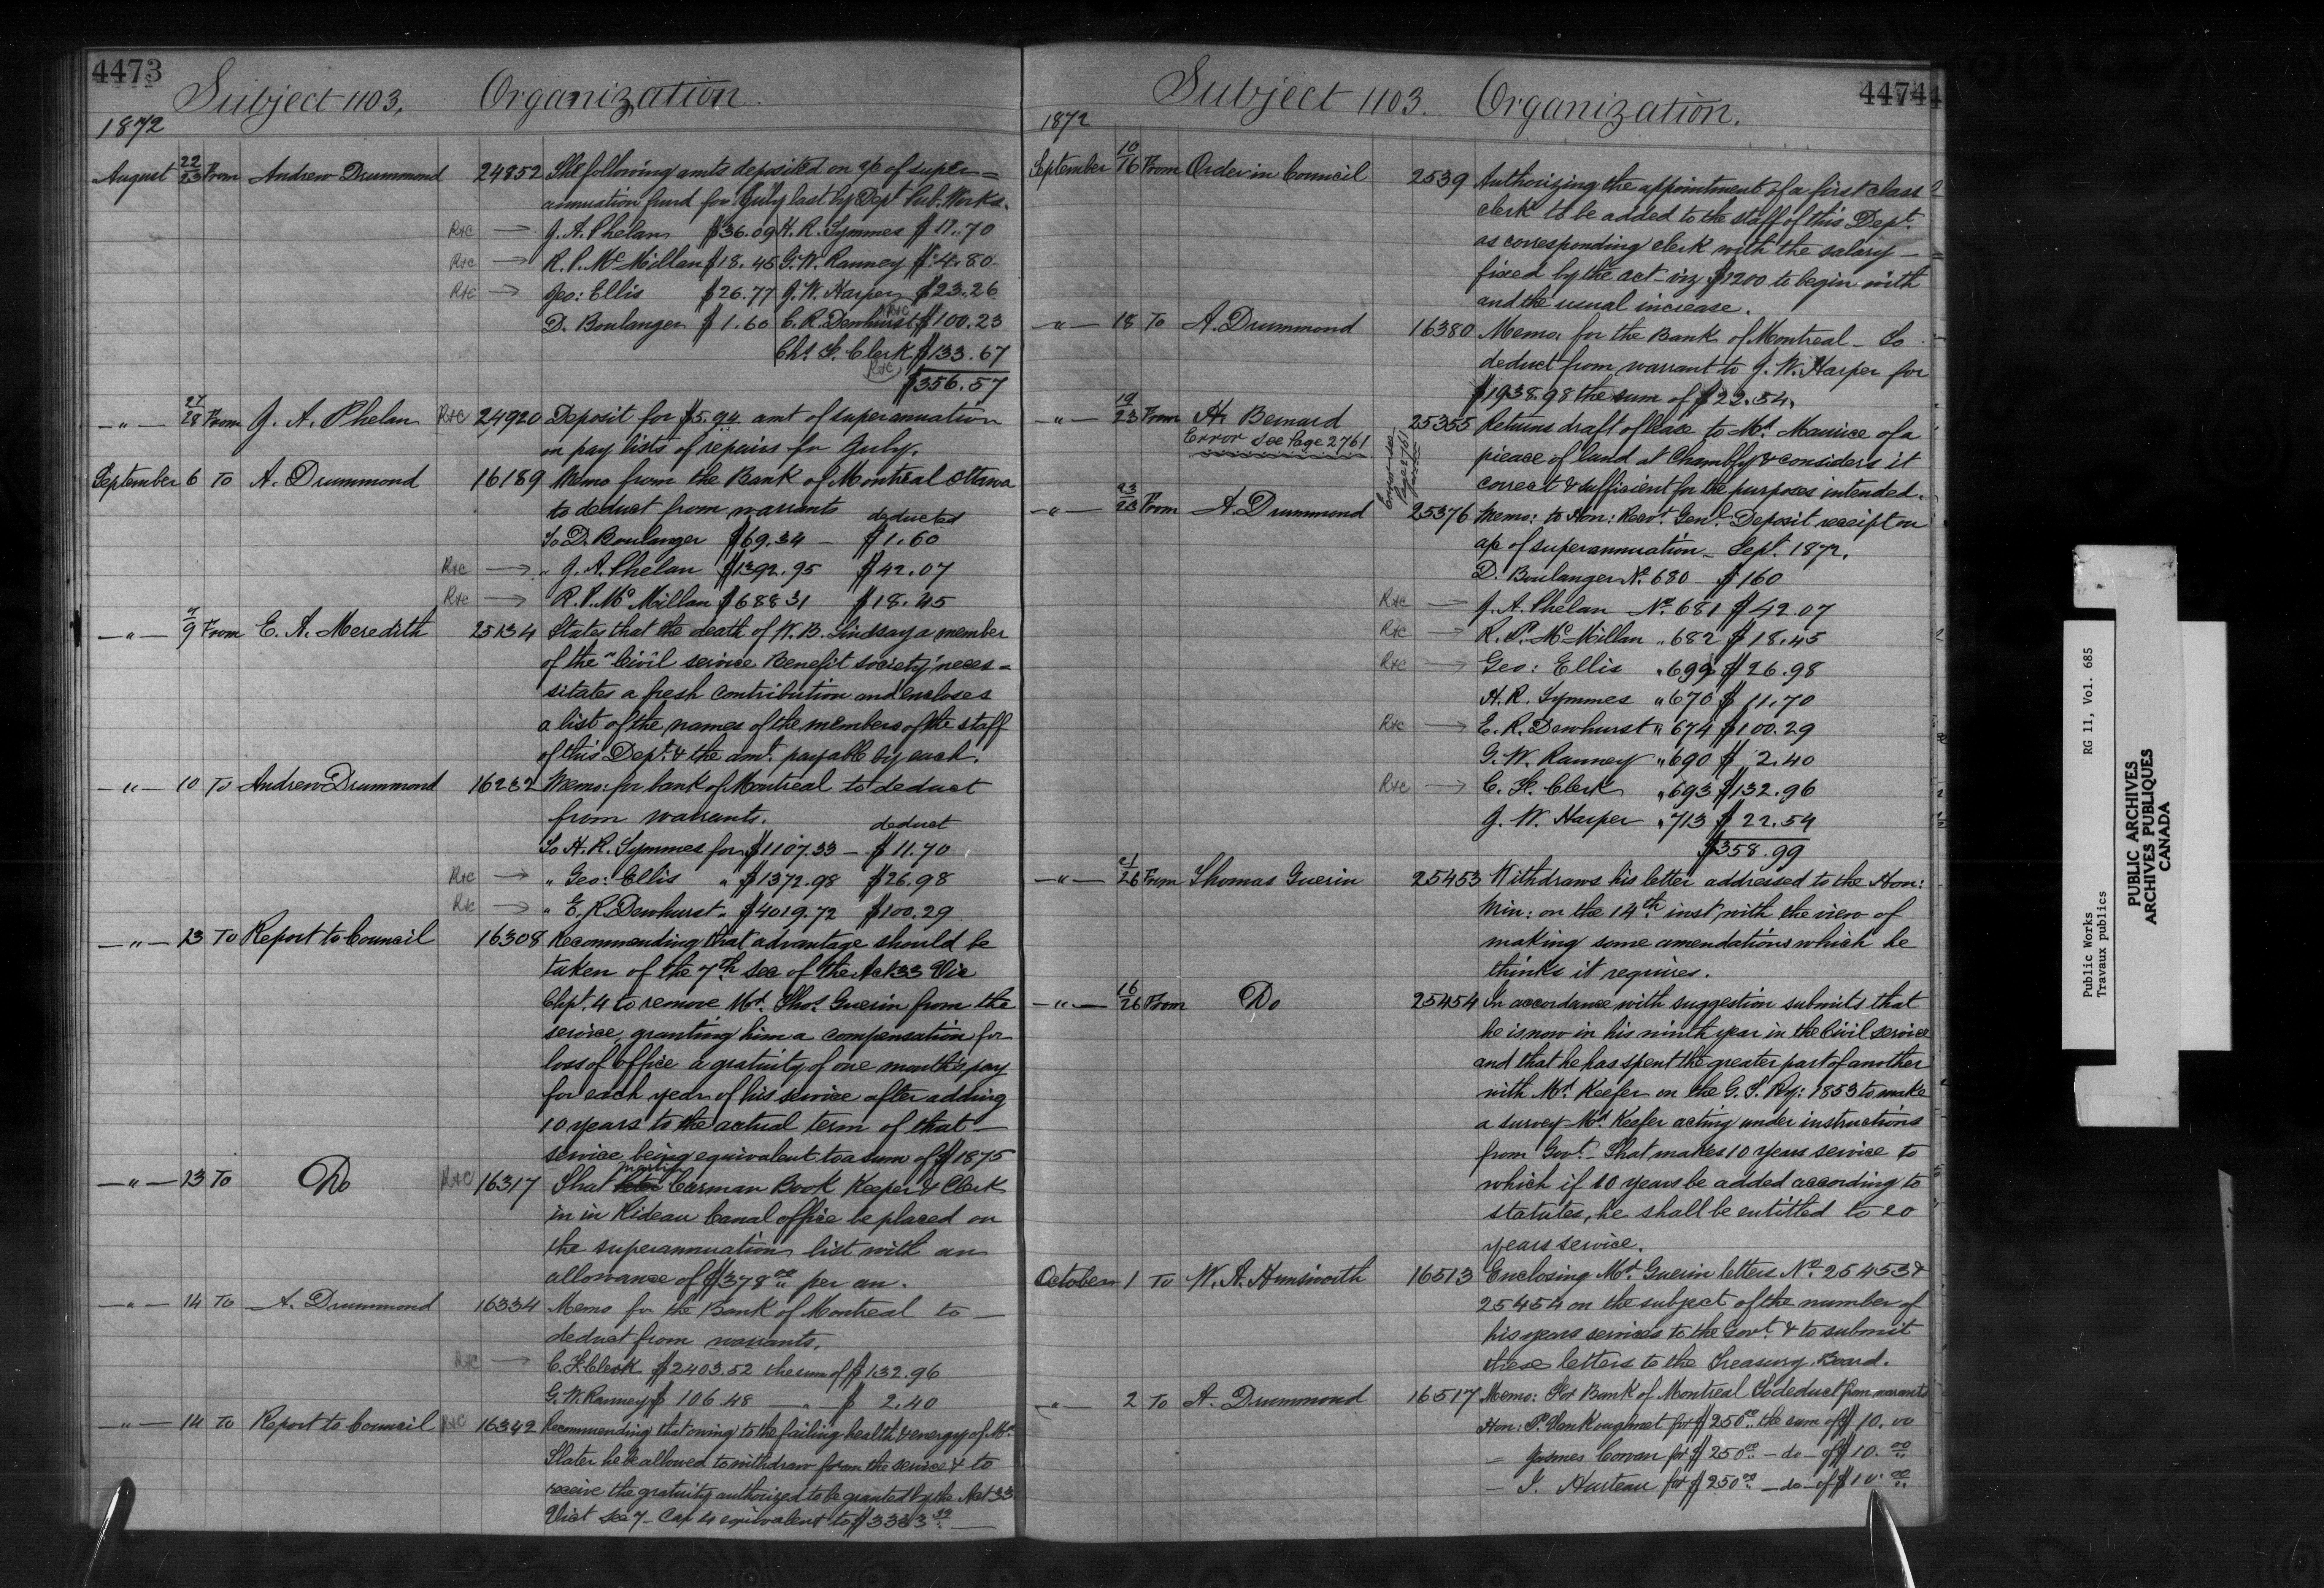 4473
Subject 1103. Organization.
1872
August 22/23 From Andrew Drummond 24852 The following amts deposited on a/c of super=
annuation fund for July last by Dept Pub. Works.
R+C → J. A. Phelan $36.09 H. R. Symmes $11.70
R+C → R. P. McMillan $18.45 G. W. Ranney $4.80
R+C → Geo: Ellis $26.77 J. W. Harper $23.26
D. Boulanger $1.60 E. R. Dewhurst R+C $100.23
Chs. F. Clerk $133.67
R+C $356.57
—"— 27/28 From J. A. Phelan R+C 24920 Deposit for $5.94 amt of superannuation
on pay lists of repairs for July.
September 6 To A. Drummond 16189 Memo from the Bank of Montreal Ottawa
to deduct from warrants deducted
To D. Boulanger $69.34 — $1.60
R+C → " J. A. Phelan $1392.95 $42.07
R+C → R. P. McMillan $688 31 $18.45
—"— 7/9 From E. A. Meredith 25134 States that the death of W. B. Lindsay a member
of the "Civil service Benefit society" neces=
sitates a fresh contribution and encloses
a list of the names of the members of the staff
of this Dept. & the amt. payable by each.
—"— 10 To Andrew Drummond 16232 Memo: for bank of Montreal to deduct
from warrants. deduct
To H. R. Symmes for $1107.33 — $11.70
R+C → " Geo: Ellis " $1372.98 $26.98
R+C → " E. R. Dewhurst " $4019.72 $100.29
—"— 13 To Report to Council 16308 Recommending that advantage should be
taken of the 7th sec of the Act 33 Vic
Chpt. 4 to remove Mr. Thos. Guerin from the
service, granting him a compensation for
loss of office a gratuity of one month's pay
for each year of his service after adding
10 years to the actual term of that —
service being equivalent to a sum of $1875
—"— 13 To Do R+C 16317 That Martin Carman Book Keeper & Clerk
in in Rideau Canal office be placed on
the superannuation list with an
allowance of $378 00 per an.
—"— 14 To A. Drummond 16334 Memo for the Bank of Montreal to —
deduct from warrants.
R+C → C. F. Clerk $2403.52 the sum of $132.96
G. W. Ranney $106.48 — " $2.40
—"— 14 To Report to Council R+C 16342 Recommending that owing to the failing health & energy of Mr.
Slater he be allowed to withdraw from the service & to
receive the gratuity authorized to be granted by the Act 33
Vict sec 7 — Cap 4 equivalent to $3333 32
44744
Subject 1103. Organization.
1872
September 10/16 From Order in Council 2539 Authorizing the appointment of a first class
clerk to be added to the staff of this Dept.
as corresponding clerk with the salary —
fixed by the act — viz $1200 to begin with
and the usual increase.
—"— 18 To A. Drummond 16380 Memo: for the Bank of Montreal — To
deduct from warrant to J. W. Harper for
$1938.98 the sum of $22.54.
—"— 19/23 From H. Bernard 25355 Returns draft of lease to Mr. Maurice of a
Error see Page 2761
Error see Page 2761
pieace of land at Chambly & considers it
correct & sufficient for the purposes intended.
—"— 23/23 From A. Drummond 25376 Memo: to Hon: Recvr. Genl. Deposit receipt on
a/c of superannuation — Sept. 1872.
D. Boulanger No. 680 — $160
R+C → J. A. Phelan No. 681 $42.07
R+C → R. P. McMillan " 682 $18.45
R+C → Geo: Ellis " 699 $26.98
H. R. Symmes " 670 $11.70
R+C → E. R. Dewhurst " 674 $100.29
G. W. Ranney " 690 $2.40
R+C → C. F. Clerk " 693 $132.96
J. W. Harper " 713 $22.54
$358.99
—"— 21/26 From Thomas Guerin 25453 Withdraws his letter addressed to the Hon:
Min: on the 14th inst, with the view of
making some amendations which he
thinks it requires.
—"— 16/26 From Do 25454 In accordance with suggestion submits that
he is now in his ninth year in the Civil service
and that he has spent the greater part of another
with Mr. Keefer on the G. T. Ry: 1853 to make
a survey Mr. Keefer acting under instructions
from Govt. — That makes 10 years service to
which if 10 years be added according to
statutes, he shall be entitled to 20
years service.
October 1 To W. A. Himsworth 16513 Enclosing Mr. Guerin letters No. 25453 &
25454 on the subject of the number of
his years services to the Govt. & to submit
these letters to the Treasury Board.
—"— 2 To A. Drummond 16517 Memo: For Bank of Montreal To deduct from warrants
Hon: P. VanKoughnet for $250 00 the sum of $10.00
— James Cowan for $250 00 — do — of $10.00
— I. Hurteau for $250 00 — do — of $10.00
Public Works RG 11, Vol. 685
Travaux publics
PUBLIC ARCHIVES
ARCHIVES PUBLIQUES
CANADA